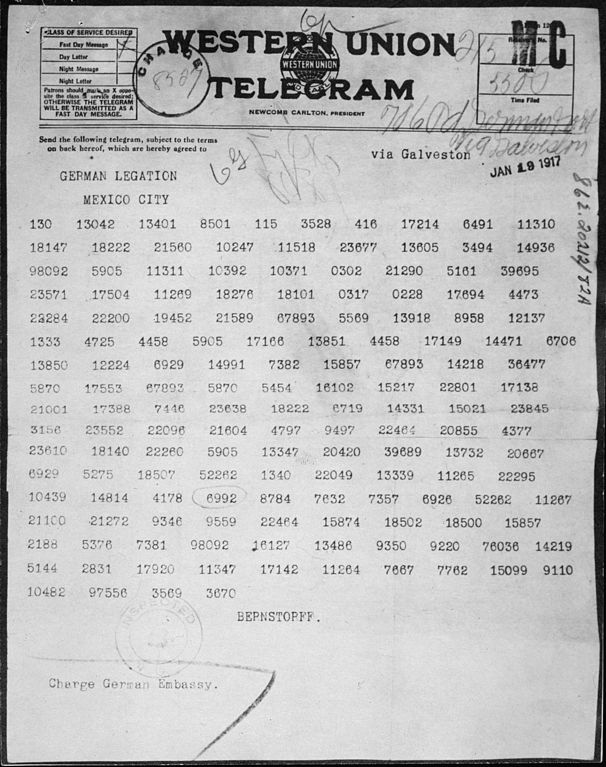 CLASS OF SERVICE DESIRED
Fast Day Message
Day Letter
Night Message
Night Letter
Patrons should mark an X oppo-
site the class of service desired;
OTHERWISE THE TELEGRAM
WILL BE TRANSMITTED AS A
FAST DAY MESSAGE.
CHARGE
WESTERN UNION
WESTERN UNION
TELEGRAM
NEWCOMB CARLTON, PRESIDENT
M C
Check
Time Filed
Send the following telegram, subject to the terms
on back hereof, which are hereby agreed to
via Galveston
JAN 19 1917
GERMAN LEGATION
MEXICO CITY
130 13042 13401 8501 115 3528 416 17214 6491 11310
18147 18222 21560 10247 11518 23677 13605 3494 14936
98092 5905 11311 10392 10371 0302 21290 5161 39695
23571 17504 11269 18276 18101 0317 0228 17694 4473
22284 22200 19452 21589 67893 5569 13918 8958 12137
1333 4725 4458 5905 17166 13851 4458 17149 14471 6706
13850 12224 6929 14991 7382 15857 67893 14218 36477
5870 17553 67893 5870 5454 16102 15217 22801 17138
21001 17388 7446 23638 18222 6719 14331 15021 23845
3156 23552 22096 21604 4797 9497 22464 20855 4377
23610 18140 22260 5905 13347 20420 39689 13732 20667
6929 5275 18507 52262 1340 22049 13339 11265 22295
10439 14814 4178 6992 8784 7632 7357 6926 52262 11267
21100 21272 9346 9559 22464 15874 18502 18500 15857
2188 5376 7381 98092 16127 13486 9350 9220 76036 14219
5144 2831 17920 11347 17142 11264 7667 7762 15099 9110
10482 97556 3569 3670
BERNSTORFF.
INSPECTED
Charge German Embassy.